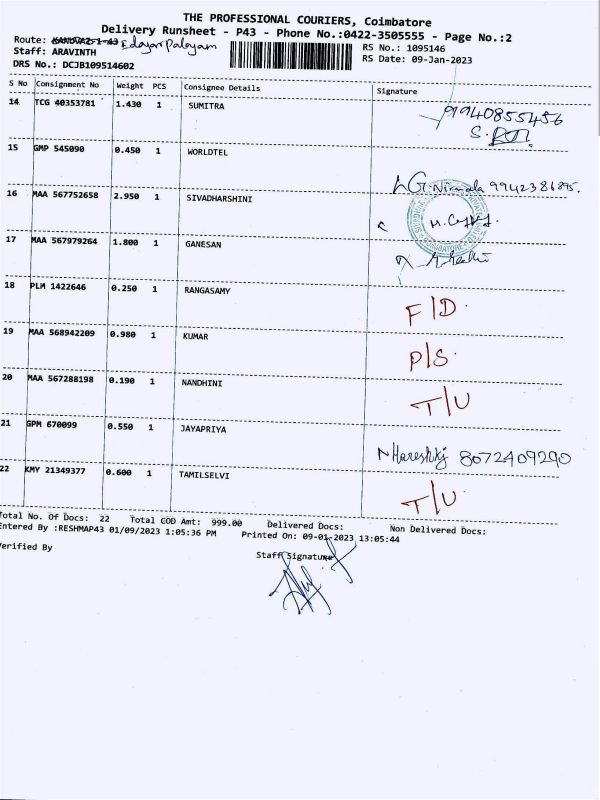 THE PROFESSIONAL COURIERS, Coimbatore
Delivery Runsheet - P43 - Phone No.:0422-3505555 - Page No.:2
Route: Edayar Palayam
RS No.: 1095146
Staff: ARAVINTH
RS Date: 09-Jan-2023
DRS No.: DCJB109514602
S No Consignment No Weight PCS Consignee Details Signature
14 TCG 40353781 1.430 1 SUMITRA 9940855456
15 GMP 545090 0.450 1 WORLDTEL G. Nirmala 9942386895.
16 MAA 567752658 2.950 1 SIVADHARSHINI
17 MAA 567979264 1.800 1 GANESAN
18 PLM 1422646 0.250 1 RANGASAMY F/D.
19 MAA 568942209 0.980 1 KUMAR P/S.
20 MAA 567288198 0.190 1 NANDHINI T/U
21 GPM 670099 0.550 1 JAYAPRIYA 8072409290
22 KMY 21349377 0.600 1 TAMILSELVI T/U.
Total No. Of Docs: 22 Total COD Amt: 999.00 Delivered Docs: Non Delivered Docs:
Entered By :RESHMAP43 01/09/2023 1:05:36 PM Printed On: 09-01-2023 13:05:44
Verified By Staff Signature